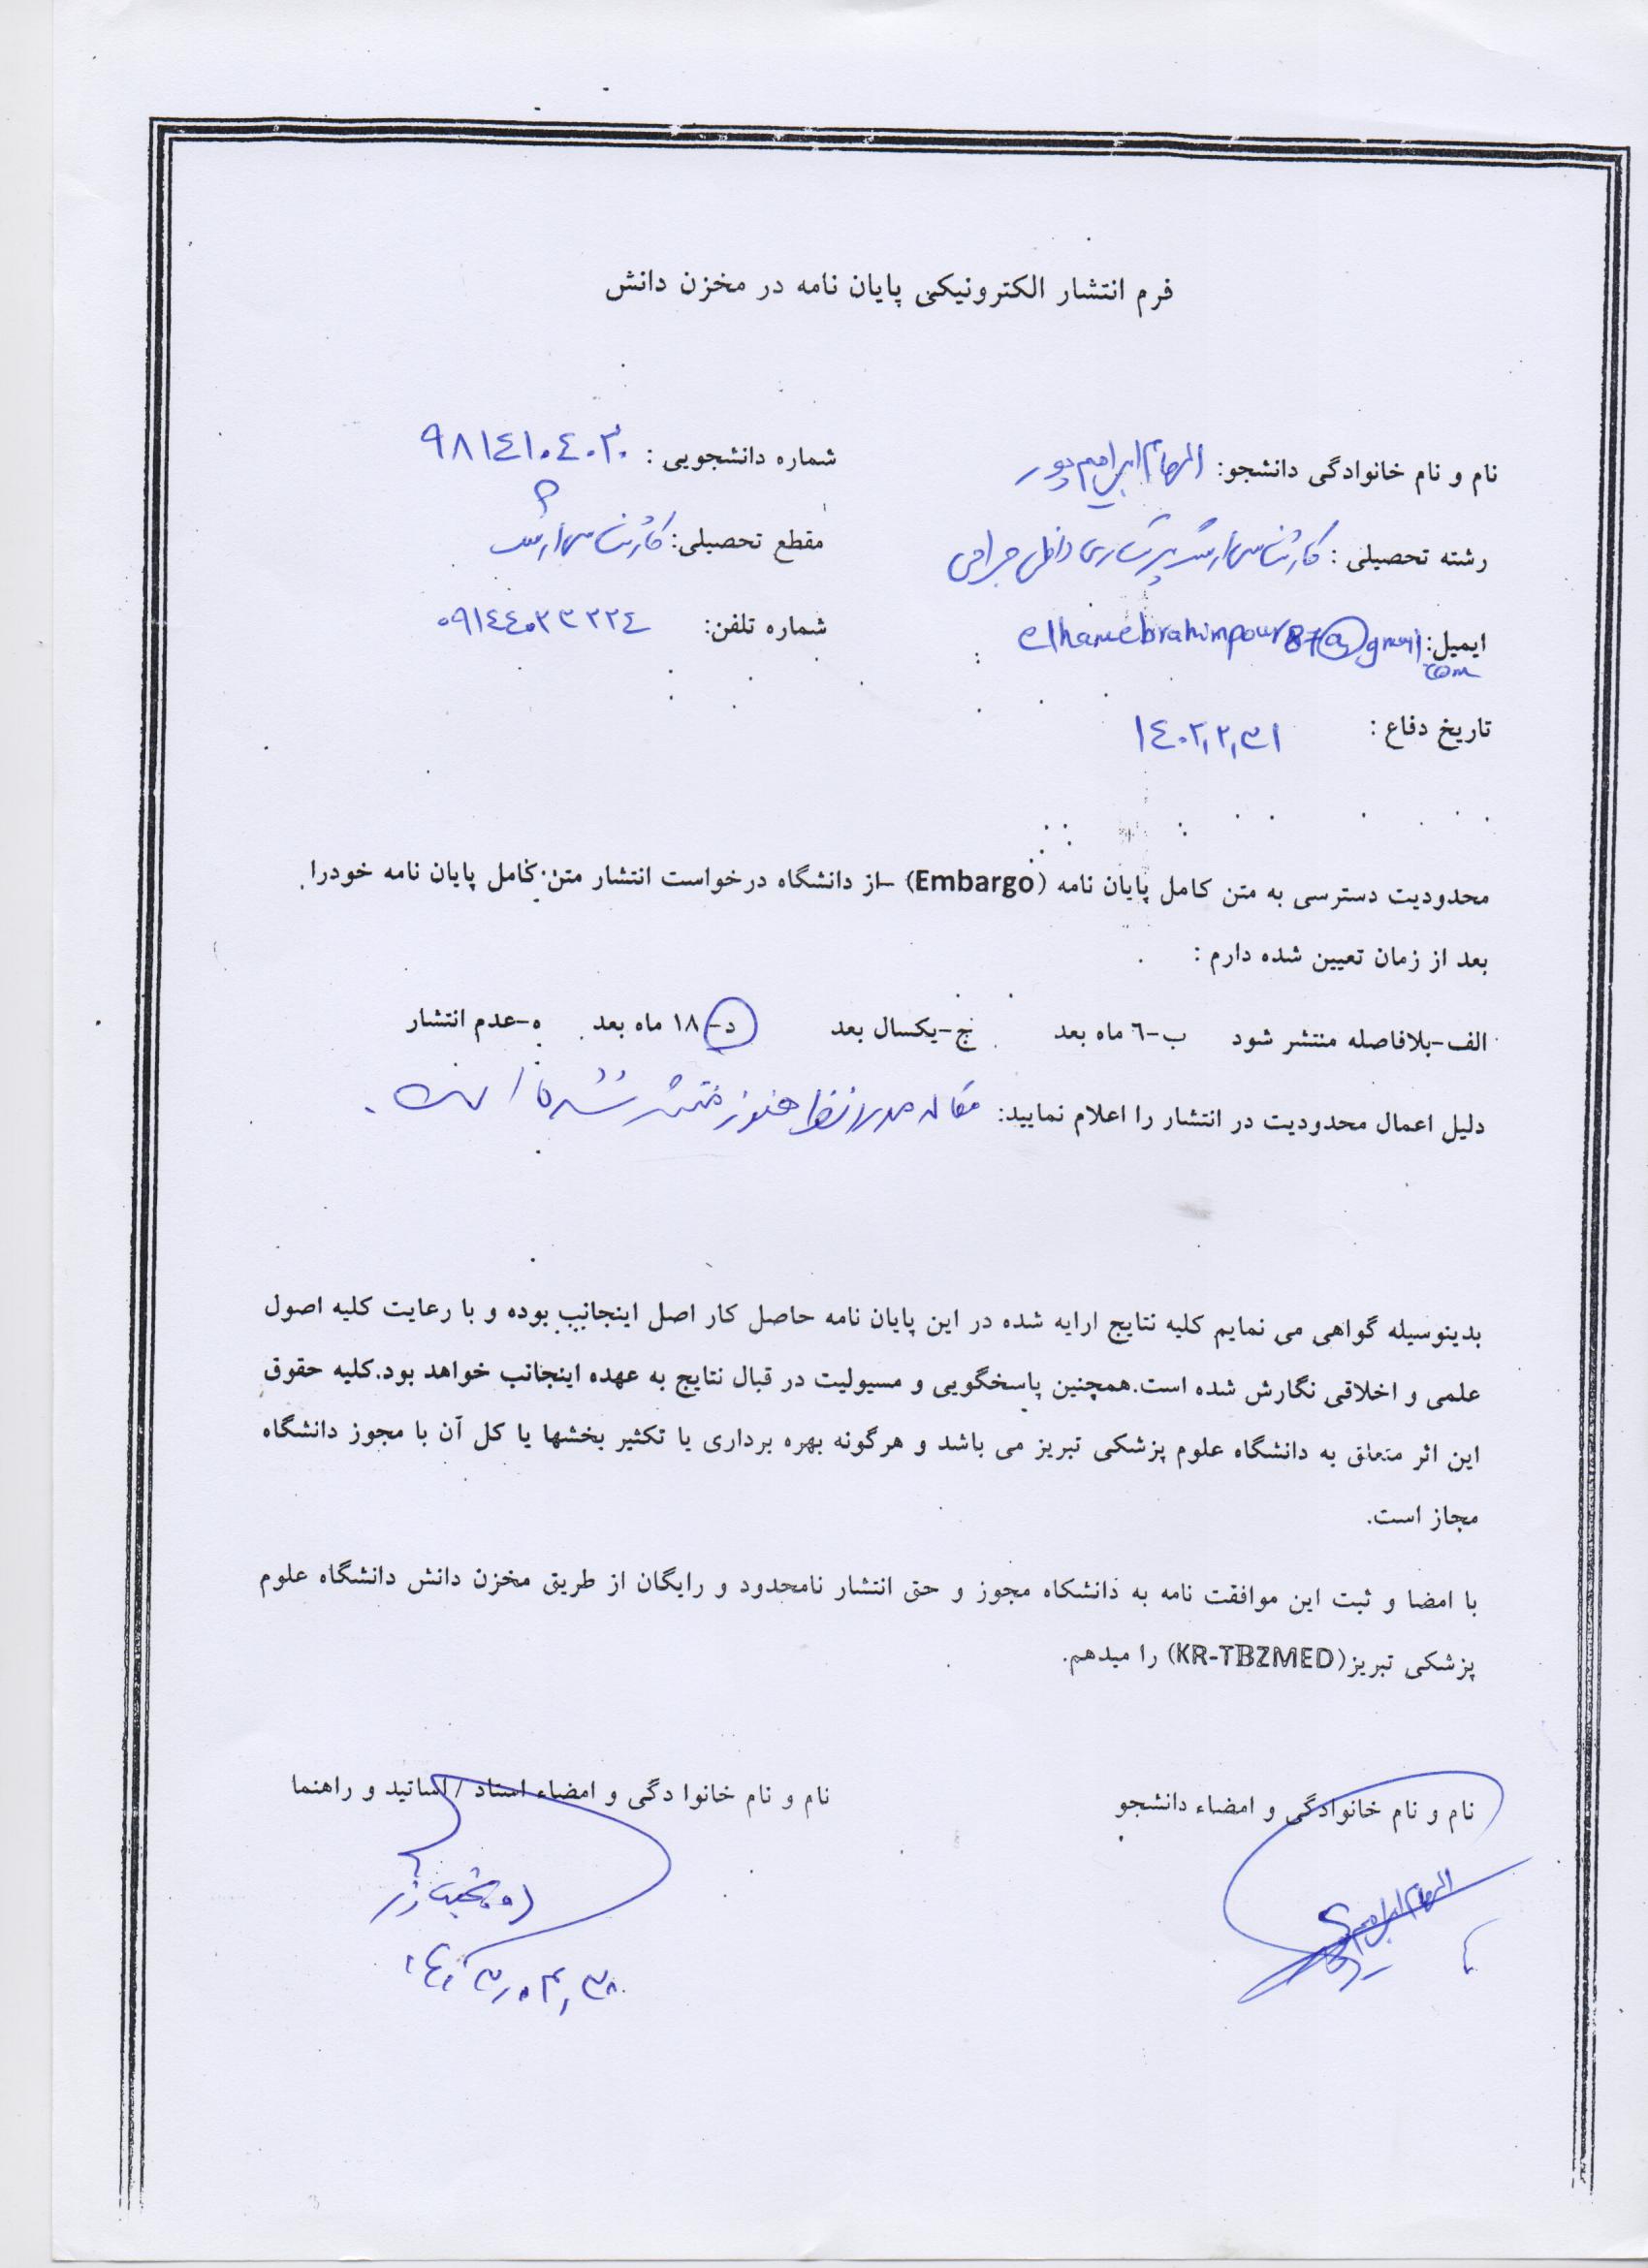 فرم انتشار الکترونیکی پایان نامه در مخزن دانش
نام و نام خانوادگی دانشجو: الهام ابراهیم پور شماره دانشجویی : ۹۸۱٤۱۰٤۰۳۰
رشته تحصیلی : کارشناسی ارشد پرستاری داخلی جراحی مقطع تحصیلی: کارشناسی ارشد
ایمیل: elhamebrahimpour87@gmail.com شماره تلفن: ۰۹۱٤٤۰۲۳۲۲٤
تاریخ دفاع : ۱٤۰۲,۲,۳۱
محدودیت دسترسی به متن کامل پایان نامه (Embargo) –از دانشگاه درخواست انتشار متن کامل پایان نامه خودرا
بعد از زمان تعیین شده دارم :
الف-بلافاصله منتشر شود ب-٦ ماه بعد ج-یکسال بعد د- ۱۸ ماه بعد ه-عدم انتشار
دلیل اعمال محدودیت در انتشار را اعلام نمایید: مقاله مورد نظر هنوز منتشر نشده است.
بدینوسیله گواهی می نمایم کلیه نتایج ارایه شده در این پایان نامه حاصل کار اصل اینجانب بوده و با رعایت کلیه اصول
علمی و اخلاقی نگارش شده است.همچنین پاسخگویی و مسیولیت در قبال نتایج به عهده اینجانب خواهد بود.کلیه حقوق
این اثر متعلق به دانشگاه علوم پزشکی تبریز می باشد و هرگونه بهره برداری یا تکثیر بخشها یا کل آن با مجوز دانشگاه
مجاز است.
با امضا و ثبت این موافقت نامه به دانشکاه مجوز و حق انتشار نامحدود و رایگان از طریق مخزن دانش دانشگاه علوم
پزشکی تبریز(KR-TBZMED) را میدهم.
نام و نام خانوادگی و امضاء دانشجو نام و نام خانوا دگی و امضاء استاد / اساتید و راهنما
الهام ابراهیم پور